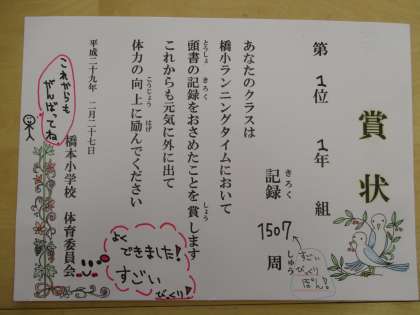 賞状
第1位 1年 組
きろく
記録 1507周
しゅう
すごい
びっくり
ぽん!!
あなたのクラスは
橋小ランニングタイムにおいて
とうしょ きろく しょう
頭書の記録をおさめたことを賞します
これからも元気に外に出て
こうじょう はげ
体力の向上に励んでください
平成二十九年 二月二十七日
橋本小学校 体育委員会
これからも
がんばってね
よく
できました!
すごい
びっくり!